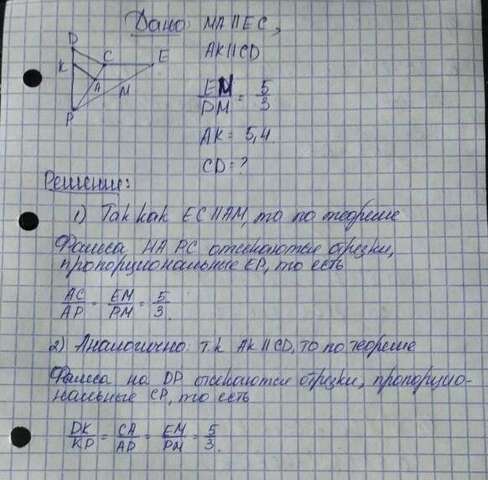 Дано: MA||EC,
AK||CD
EM/PM = 5/3
AK = 5,4
CD = ?
D
K
C
E
A
M
P
Решение:
1) Так как EC||AM, то по теореме
Фалеса на PC отсекаются отрезки,
пропорциональные EP, то есть
AC/AP = EM/PM = 5/3.
2) Аналогично т.к AK||CD, то по теореме
Фалеса на DP отсекаются отрезки, пропорцио-
нальные CP, то есть
DK/KP = CA/AP = EM/PM = 5/3.